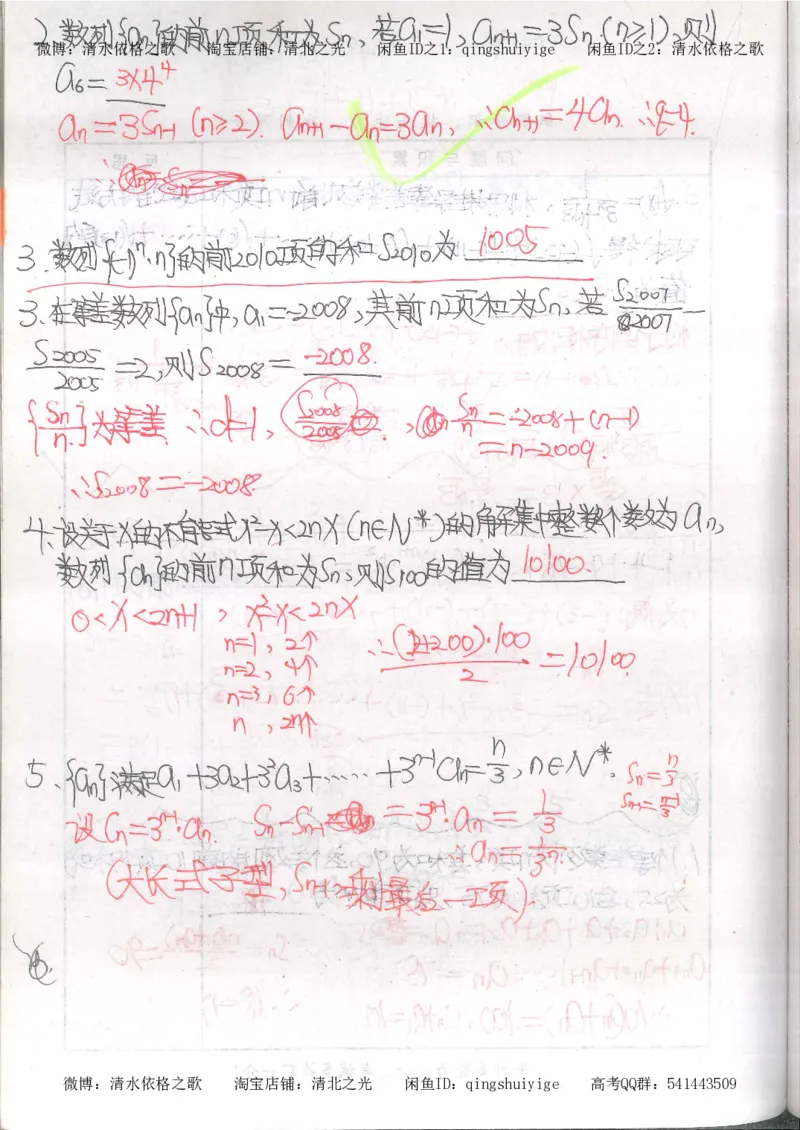 2.数列{an}的前n项和为Sn,若a1=1,an+1=3Sn(n≥1),则
微博：清水依格之歌 淘宝店铺：清北之光 闲鱼ID之1：qingshuiyige 闲鱼ID之2：清水依格之歌
a6=3×4^4
an=3Sn-1 (n≥2). an+1-an=3an, ∴an+1=4an. ∴q=4.
3.数列{(-1)^n·n}的前2010项的和S2010为 1005
3.在等差数列{an}中,a1=-2008,其前n项和为Sn,若 S2007/2007 -
S2005/2005 =2,则S2008= -2008.
{Sn/n}为等差 ∴d=1, S2008/2008 , Sn/n =-2008+(n-1)
=n-2009.
∴S2008=-2008.
4.设关于x的不等式x²-x<2nx(n∈N*)的解集中整数个数为an,
数列{an}的前n项和为Sn,则S100的值为 10100.
0<x<2n+1 , x²-x<2nx
n=1, 2个
n=2, 4个 ∴(2+200)·100/2 =10100.
n=3, 6个
n , 2n个
5.{an}满足a1+3a2+3²a3+……+3^(n-1)an=n/3,n∈N*. Sn=n/3
Sn-1=(n-1)/3
设Cn=3^(n-1)·an. Sn-Sn-1 =3^(n-1)·an = 1/3
an=1/3^n.
微博：清水依格之歌 淘宝店铺：清北之光 闲鱼ID：qingshuiyige 高考QQ群：541443509